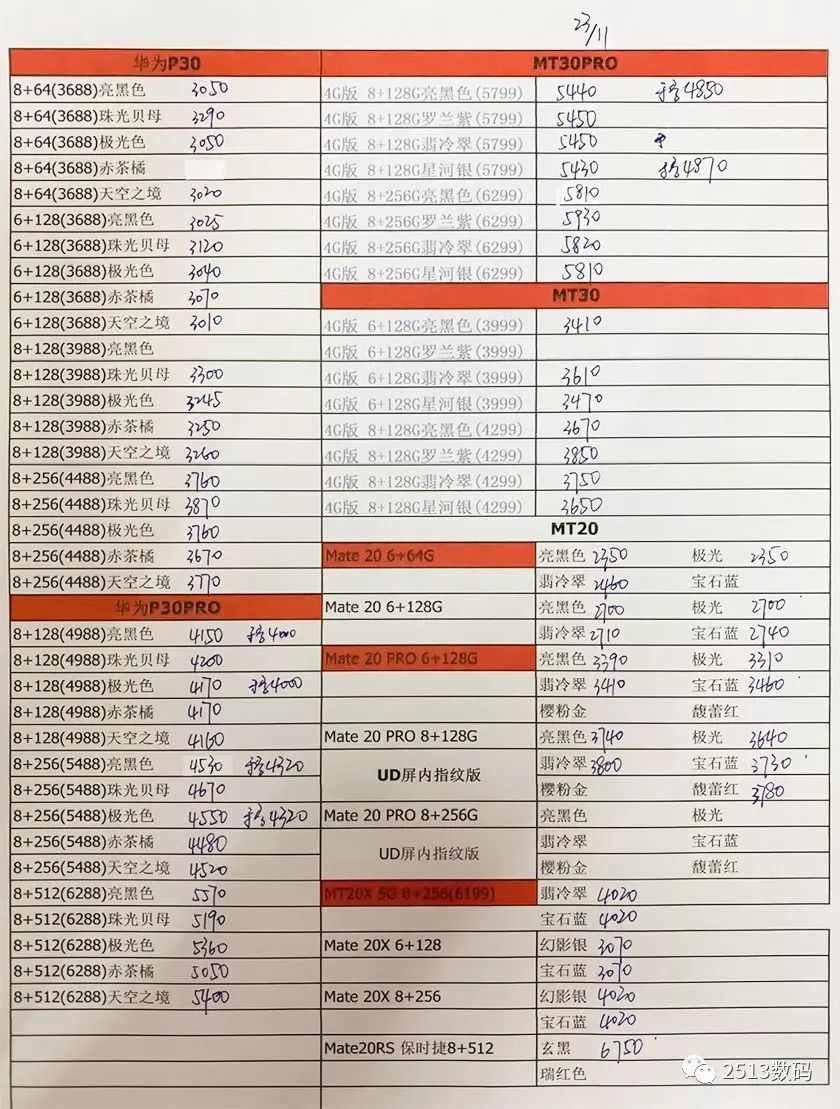 23/11
华为P30
8+64(3688)亮黑色 3050
8+64(3688)珠光贝母 3290
8+64(3688)极光色 3050
8+64(3688)赤茶橘
8+64(3688)天空之境 3020
6+128(3688)亮黑色 3025
6+128(3688)珠光贝母 3120
6+128(3688)极光色 3040
6+128(3688)赤茶橘 3070
6+128(3688)天空之境 3010
8+128(3988)亮黑色
8+128(3988)珠光贝母 3300
8+128(3988)极光色 3245
8+128(3988)赤茶橘 3250
8+128(3988)天空之境 3260
8+256(4488)亮黑色 3760
8+256(4488)珠光贝母 3870
8+256(4488)极光色 3760
8+256(4488)赤茶橘 3670
8+256(4488)天空之境 3770
华为P30PRO
8+128(4988)亮黑色 4150 4000
8+128(4988)珠光贝母 4200
8+128(4988)极光色 4170 4000
8+128(4988)赤茶橘 4170
8+128(4988)天空之境 4160
8+256(5488)亮黑色 4530 4320
8+256(5488)珠光贝母 4670
8+256(5488)极光色 4550 4320
8+256(5488)赤茶橘 4480
8+256(5488)天空之境 4520
8+512(6288)亮黑色 5570
8+512(6288)珠光贝母 5190
8+512(6288)极光色 5360
8+512(6288)赤茶橘 5050
8+512(6288)天空之境 5400
MT30PRO
4G版 8+128G亮黑色(5799) 5440 4850
4G版 8+128G罗兰紫(5799) 5450
4G版 8+128G翡冷翠(5799) 5450
4G版 8+128G星河银(5799) 5430 4870
4G版 8+256G亮黑色(6299) 5810
4G版 8+256G罗兰紫(6299) 5930
4G版 8+256G翡冷翠(6299) 5820
4G版 8+256G星河银(6299) 5810
MT30
4G版 6+128G亮黑色(3999) 3410
4G版 6+128G罗兰紫(3999)
4G版 6+128G翡冷翠(3999) 3610
4G版 6+128G星河银(3999) 3470
4G版 8+128G亮黑色(4299) 3670
4G版 8+128G罗兰紫(4299) 3850
4G版 8+128G翡冷翠(4299) 3750
4G版 8+128G星河银(4299) 3650
MT20
Mate 20 6+64G 亮黑色 2350 极光 2350
翡冷翠 2460 宝石蓝
Mate 20 6+128G 亮黑色 2700 极光 2700
翡冷翠 2710 宝石蓝 2740
Mate 20 PRO 6+128G 亮黑色 3390 极光 3310
翡冷翠 3410 宝石蓝 3460
樱粉金 馥蕾红
Mate 20 PRO 8+128G 亮黑色 3740 极光 3640
UD屏内指纹版 翡冷翠 3800 宝石蓝 3730
樱粉金 馥蕾红 3780
Mate 20 PRO 8+256G 亮黑色 极光
UD屏内指纹版 翡冷翠 宝石蓝
樱粉金 馥蕾红
MT20X 5G 8+256(6199) 翡冷翠 4020
宝石蓝 4020
Mate 20X 6+128 幻影银 3070
宝石蓝 3070
Mate 20X 8+256 幻影银 4020
宝石蓝 4020
Mate20RS 保时捷8+512 玄黑 6750
瑞红色
2513数码